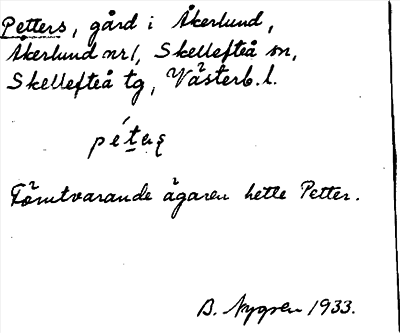 Petters, gård i Åkerlund,
Åkerlund nr 1, Skellefteå sn,
Skellefteå tg, Västerb. l.
Förutvarande ägaren hette Petter.
B. Nygren 1933.